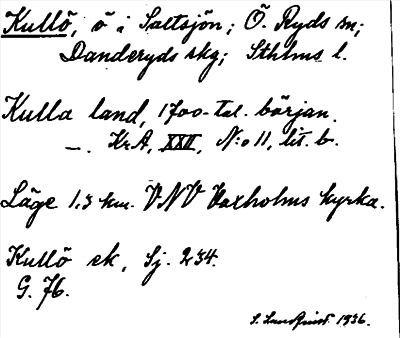 Kullö, ö i Saltsjön; Ö. Ryds sn;
Danderyds skg; Sthlms l.
Kulla land, 1700-tal. början.
—. Kr.A, XXII, N:o 11, lit. b.
Läge 1.3 km. V-NV Vaxholms kyrka.
Kullö ek, Sj. 234.
G. 76.
S. Landqvist 1936.